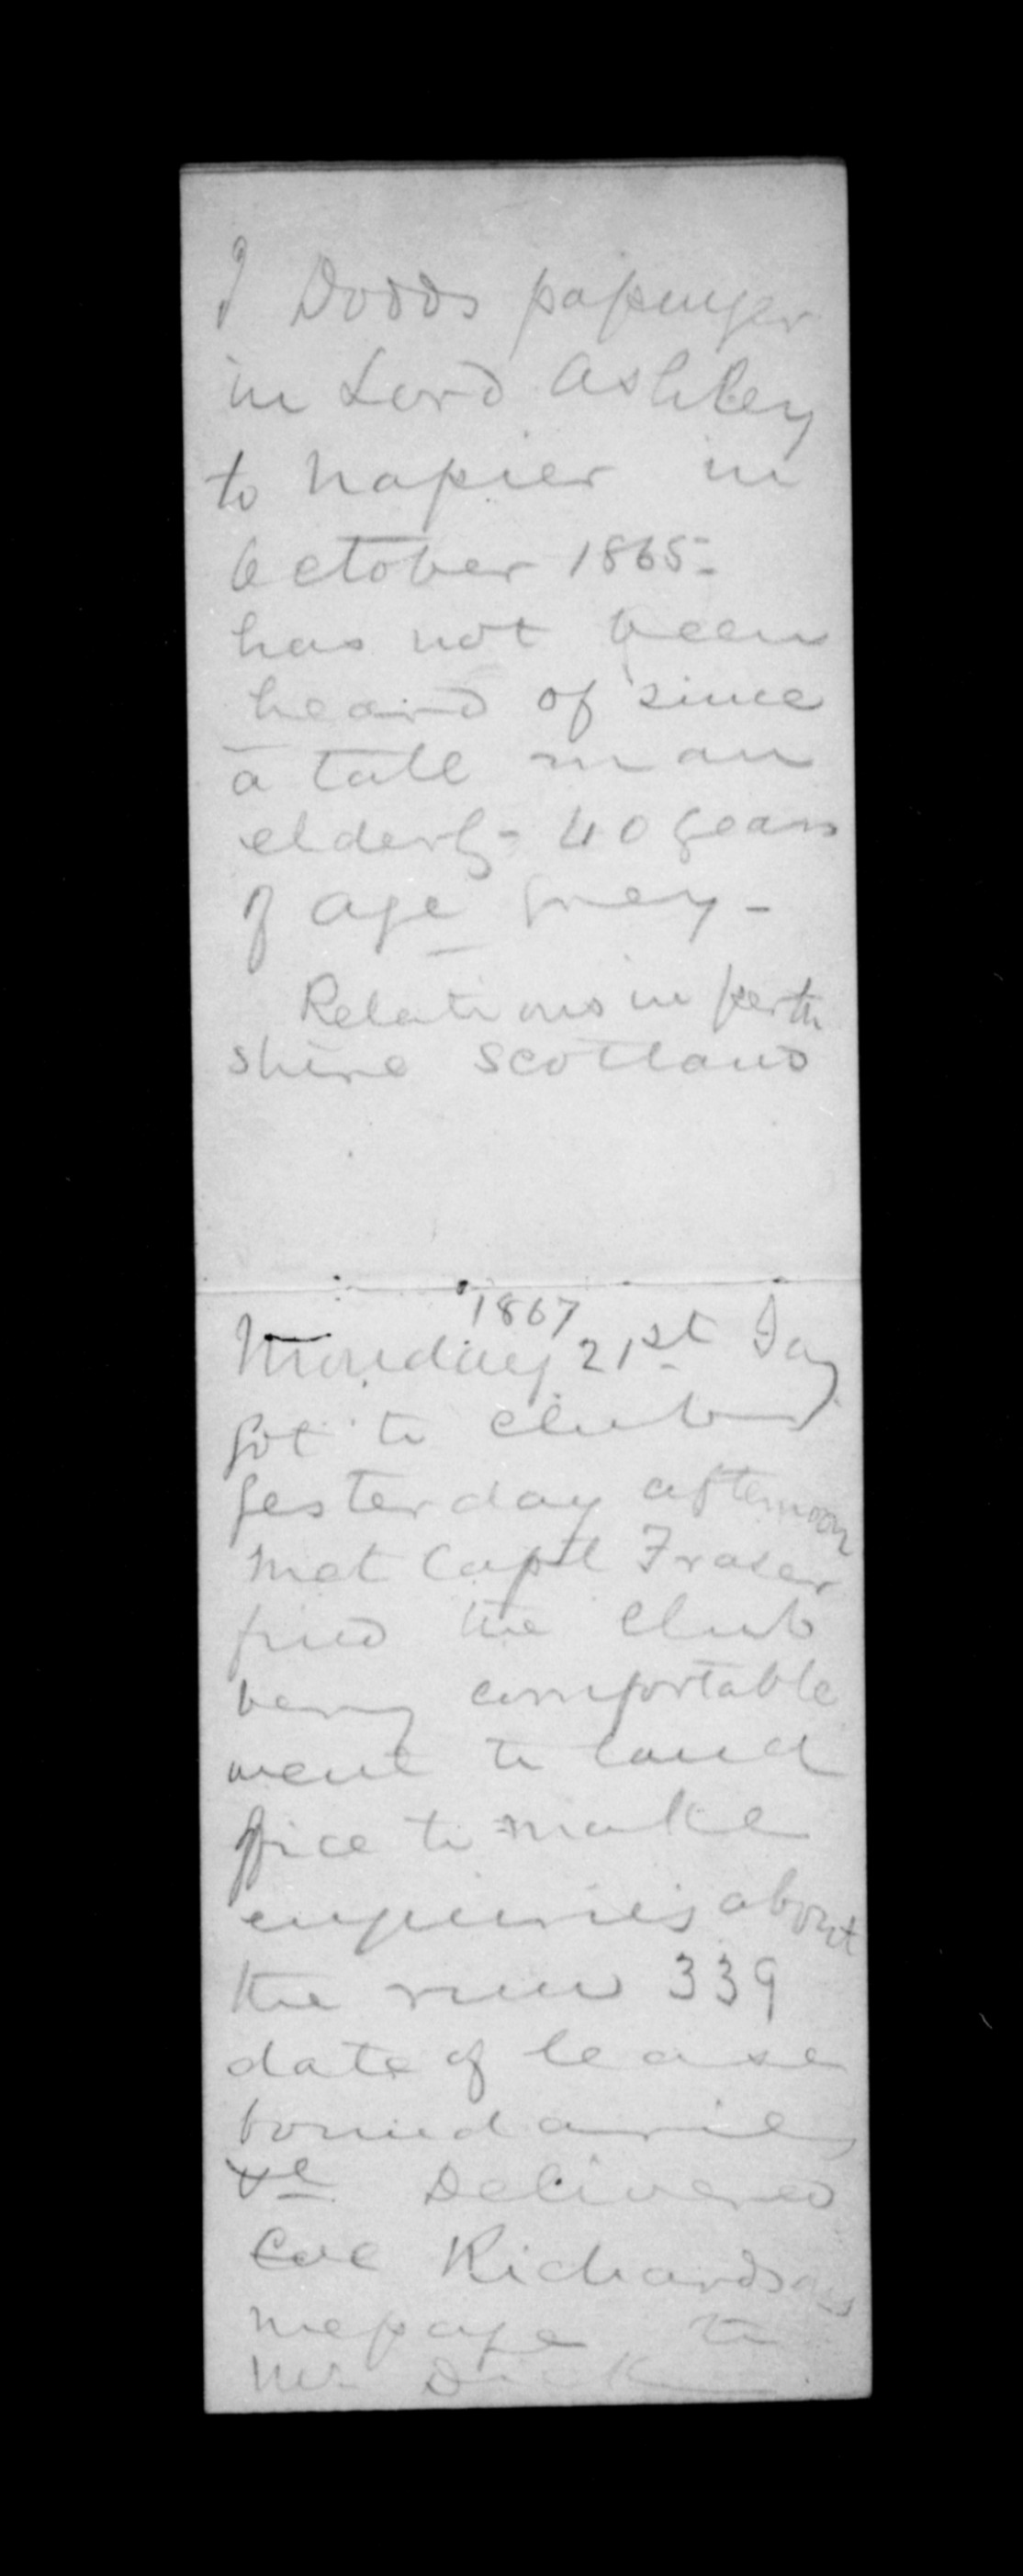 J Dodds passenger
in Lord Ashley
to Napier in
October 1865-
has not been
heard of since
a tall man
elderly - 40 years
of age grey -
Relations in perth
shire Scotland
1867
Monday 21st Jany
got to club
yesterday afternoon
met Capt Fraser
find the Club
very comfortable
went to land
office to make
enquiries about
the run 339
date of lease
boundaries
&c Delivered
Col Richardsons
message to
Mr Dick